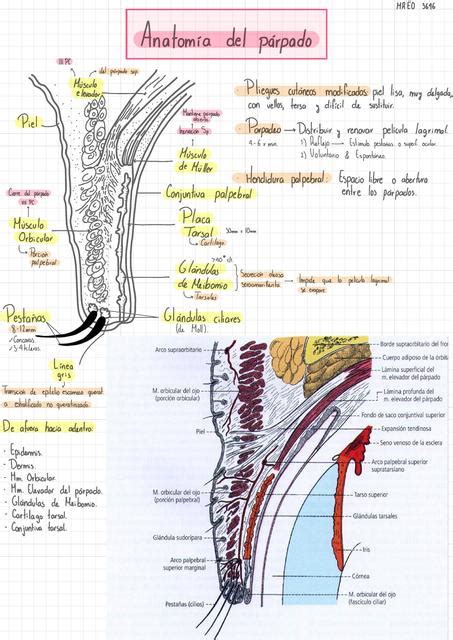 HREO 3696
Anatomía del párpado
III PC
del párpado sup.
Músculo
elevador
Piel
Mantiene párpado
abierto
Inervación Sp
Músculo
de Müller
Cierre del párpado
VII PC
Músculo
Orbicular
Porción
palpebral
Conjuntiva palpebral
Placa
Tarsal
30mm x 10mm
Cartílago
Glándulas
de Meibomio
Tarsales
Secreción oleosa
Impide que la película lagrimal
se evapore
Pestañas
8-12mm
Glándulas ciliares
(de Moll).
Línea
gris
Transición de epitelio escamoso querat.
a estratificado no queratinizado.
· Pliegues cutáneos modificados: piel lisa, muy delgada,
con vellos, tersa y difícil de sustituir.
· Parpadeo → Distribuir y renovar película lagrimal.
4-6 x min.
1) Reflejo → Estímulo pestañas o superf. ocular.
2) Voluntario & Espontáneo.
· Hendidura palpebral: Espacio libre o abertura
entre los párpados.
De afuera hacia adentro:
· Epidermis.
· Dermis.
· Mm. Orbicular.
· Mm. Elevador del párpado.
· Glándulas de Meibomio.
· Cartílago tarsal.
· Conjuntiva tarsal.
Arco supraorbitario
M. orbicular del ojo
(porción orbicular)
Piel
M. orbicular del ojo
(porción palpebral)
Glándula sudorípara
Arco palpebral
superior marginal
Pestañas (cilios)
Borde supraorbitario del fron
Cuerpo adiposo de la órbita
Lámina superficial del
m. elevador del párpado
Lámina profunda del
m. elevador del párpado
Fondo de saco conjuntival superior
Expansión tendinosa
Seno venoso de la esclera
Arco palpebral superior
supratarsiano
Tarso superior
Glándulas tarsales
Iris
Córnea
M. orbicular del ojo
(fascículo ciliar)